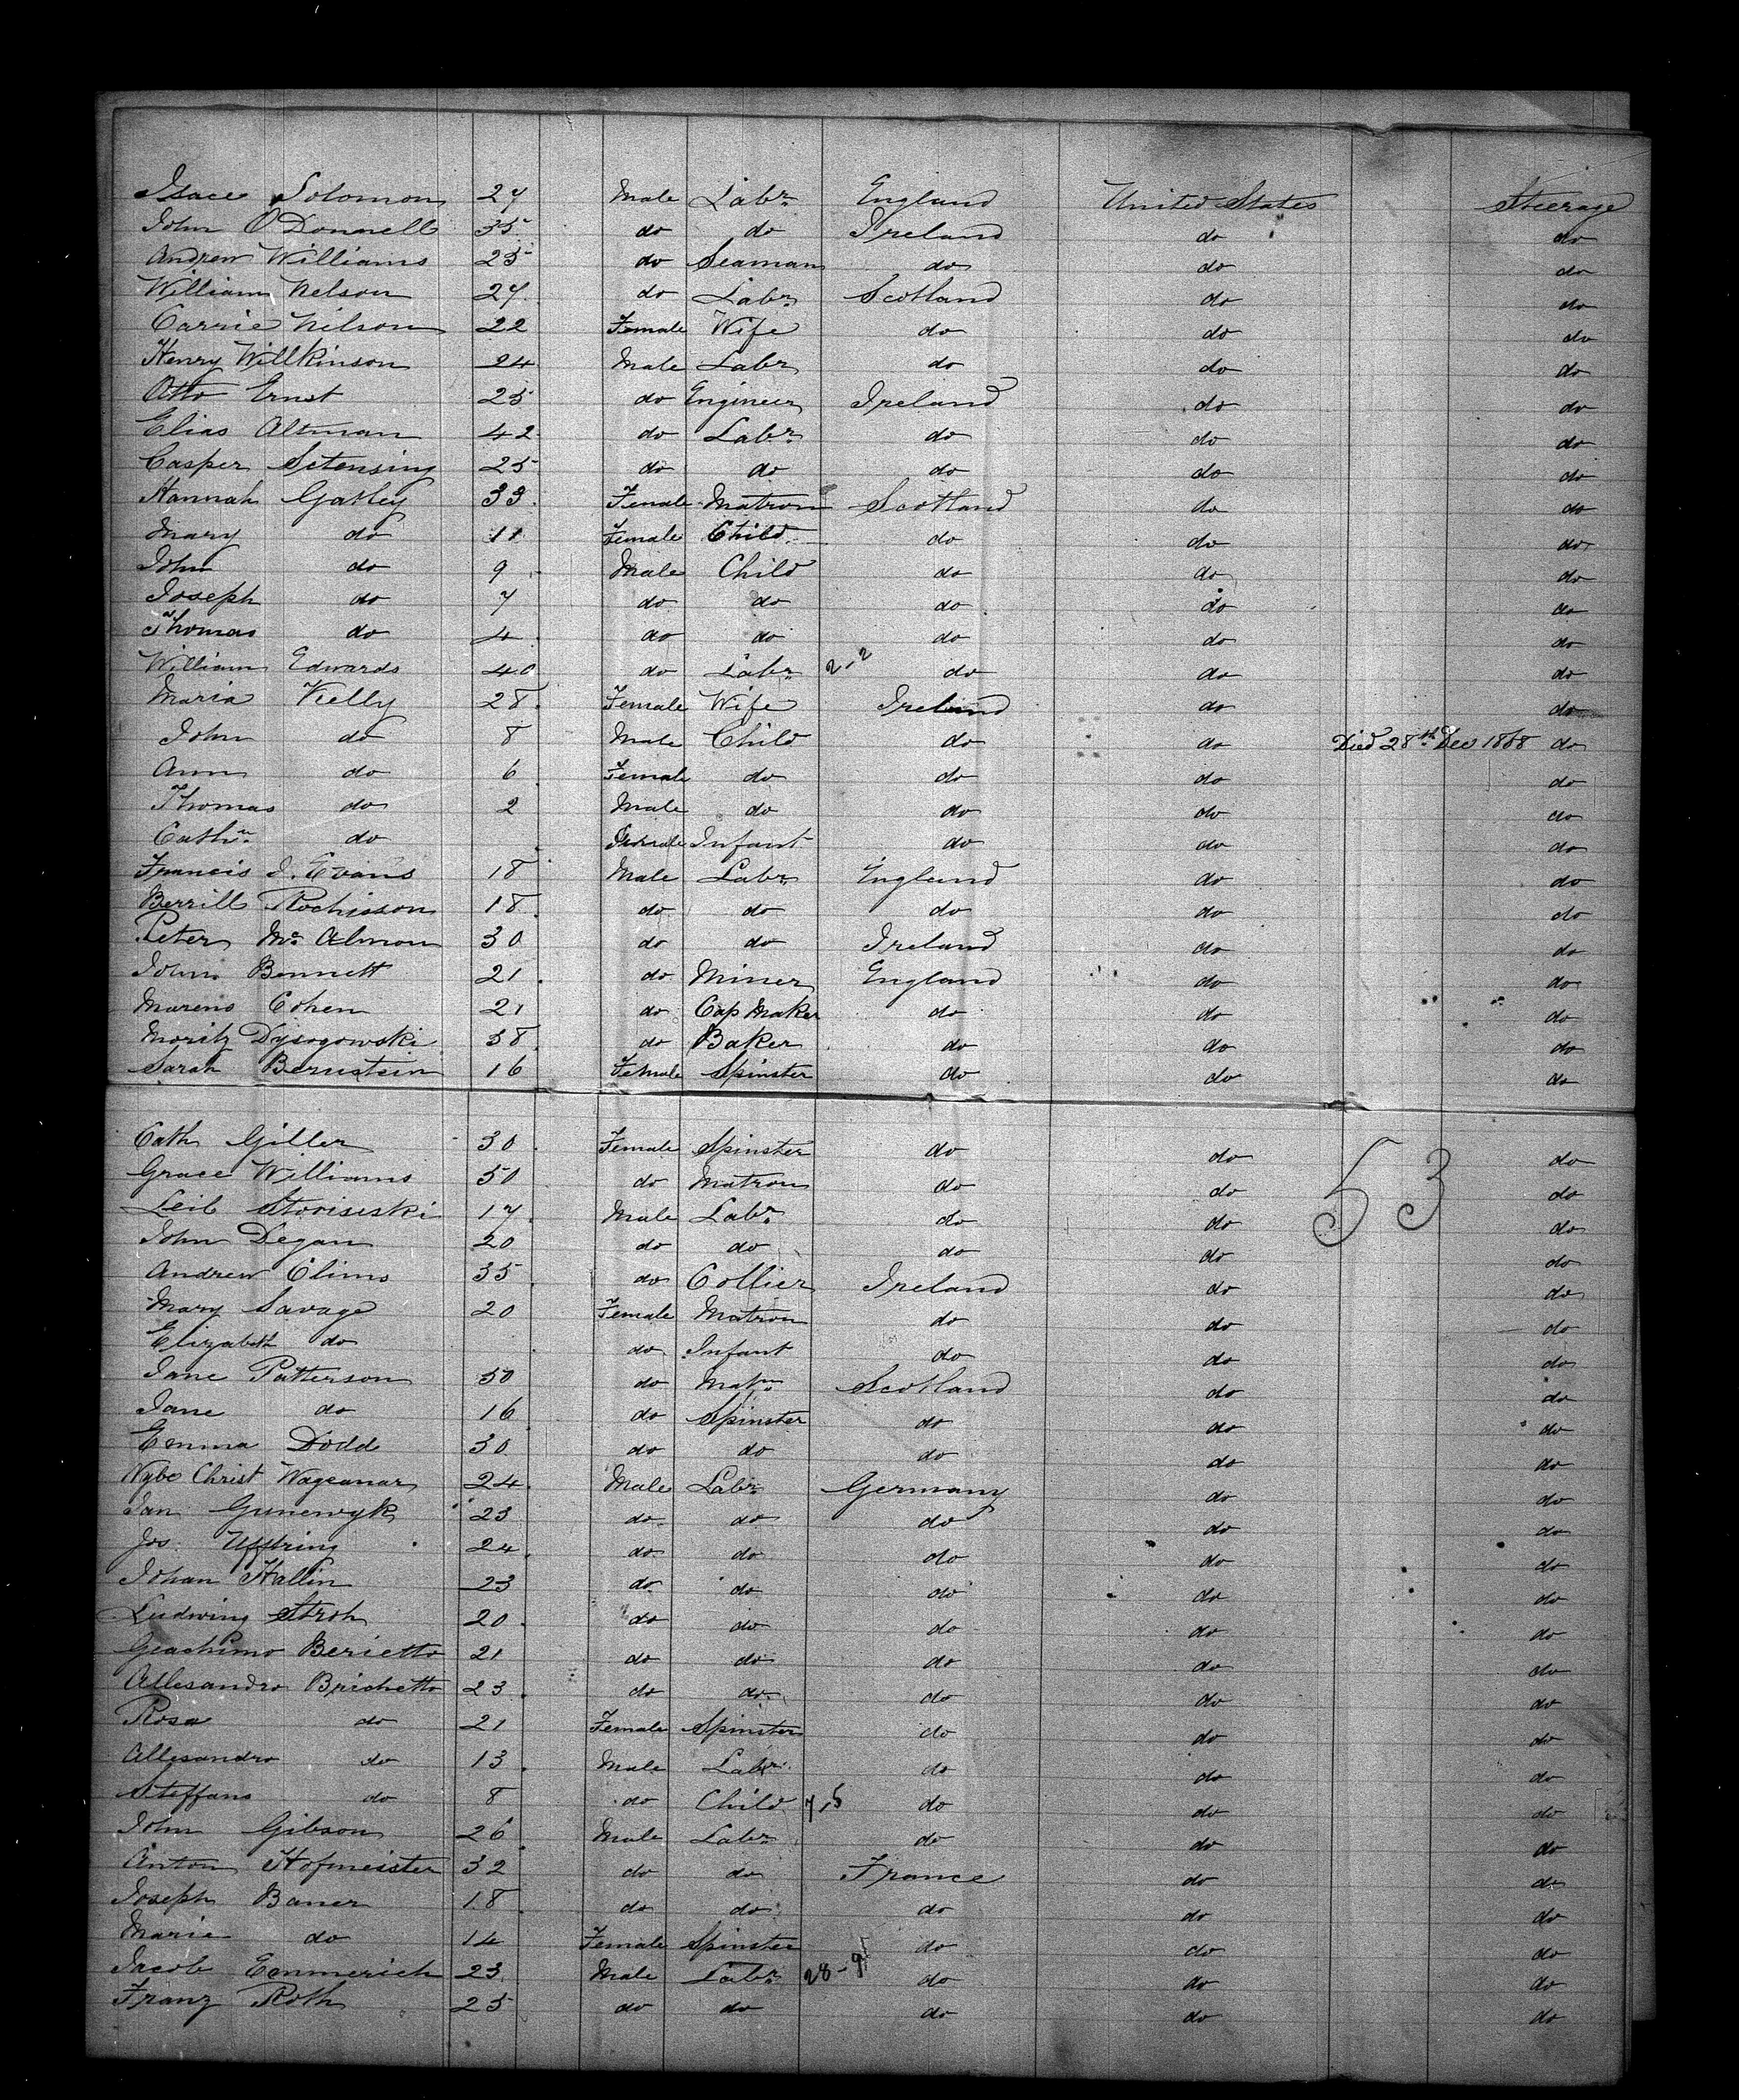 Isace Solomon 27 Male Labr. England United States Steerage
John O'Donnell 35 do do Ireland do do
Andrew Williams 25 do Seaman do do do
William Nelson 27 do Labr. Scotland do do
Carrie Nelson 22 Female Wife do do do
Henry Willkinson 24 Male Labr do do do
Otto Ernst 25 do Engineer Ireland do do
Elias Altman 42 do Labr. do do do
Casper 25 do do do do do
Hannah Gatley 33 Female Matron Scotland do do
Mary do 11 Female Child do do do
John do 9 Male Child do do do
Joseph do 7 do do do do do
Thomas do 4 do do do do do
William Edwards 40 do Labr. 2,2 do do do
Maria Kelly 28 Female Wife Ireland do do
John do 8 Male Child do do Died 28th Dec 1868 do
Ann do 6 Female do do do do
Thomas do 2 Male do do do do
Cathn. do Female Infant do do do
Francis J. Evans 18 Male Labr. England do do
Berrill 18 do do do do do
Peter Mc Almon 30 do do Ireland do do
John Bennett 21 do Miner England do do
Cohen 21 do Cap Maker do do do
Moritz 38 do Baker do do do
Sarah Bernstein 16 Female Spinster do do do
Cath Giller 30 Female Spinster do do do
Grace Williams 50 do Matron do do do
53
Leib 17 Male Labr. do do do
John Degan 20 do do do do do
Andrew Clims 35 do Collier Ireland do do
Mary Savage 20 Female Matron do do do
Elizabeth do do Infant do do do
Jane Patterson 50 do Matrn Scotland do do
Jane do 16 do Spinster do do do
Emma Dodd 30 do do do do do
Christ Wageanar 24 Male Labr. Germany do do
Jan Gunewyk 23 do do do do do
Jos. Uffring 24 do do do do do
Johan Hallin 23 do do do do do
Ludwing Stroh 20 do do do do do
Giachimo Berietto 21 do do do do do
Allesandro Brichetto 23 do do do do do
Rosa do 21 Female Spinster do do do
Allesandro do 13 Male Labr. do do do
Steffano do 8 do Child 7,5 do do do
John Gibson 26 Male Labr. do do do
Anton Hofmeister 32 do do France do do
Joseph Baner 18 do do do do do
Marie do 14 Female Spinster do do do
Jacob Emmerich 23 Male Labr. 28-9 do do do
Franz Roth 25 do do do do do